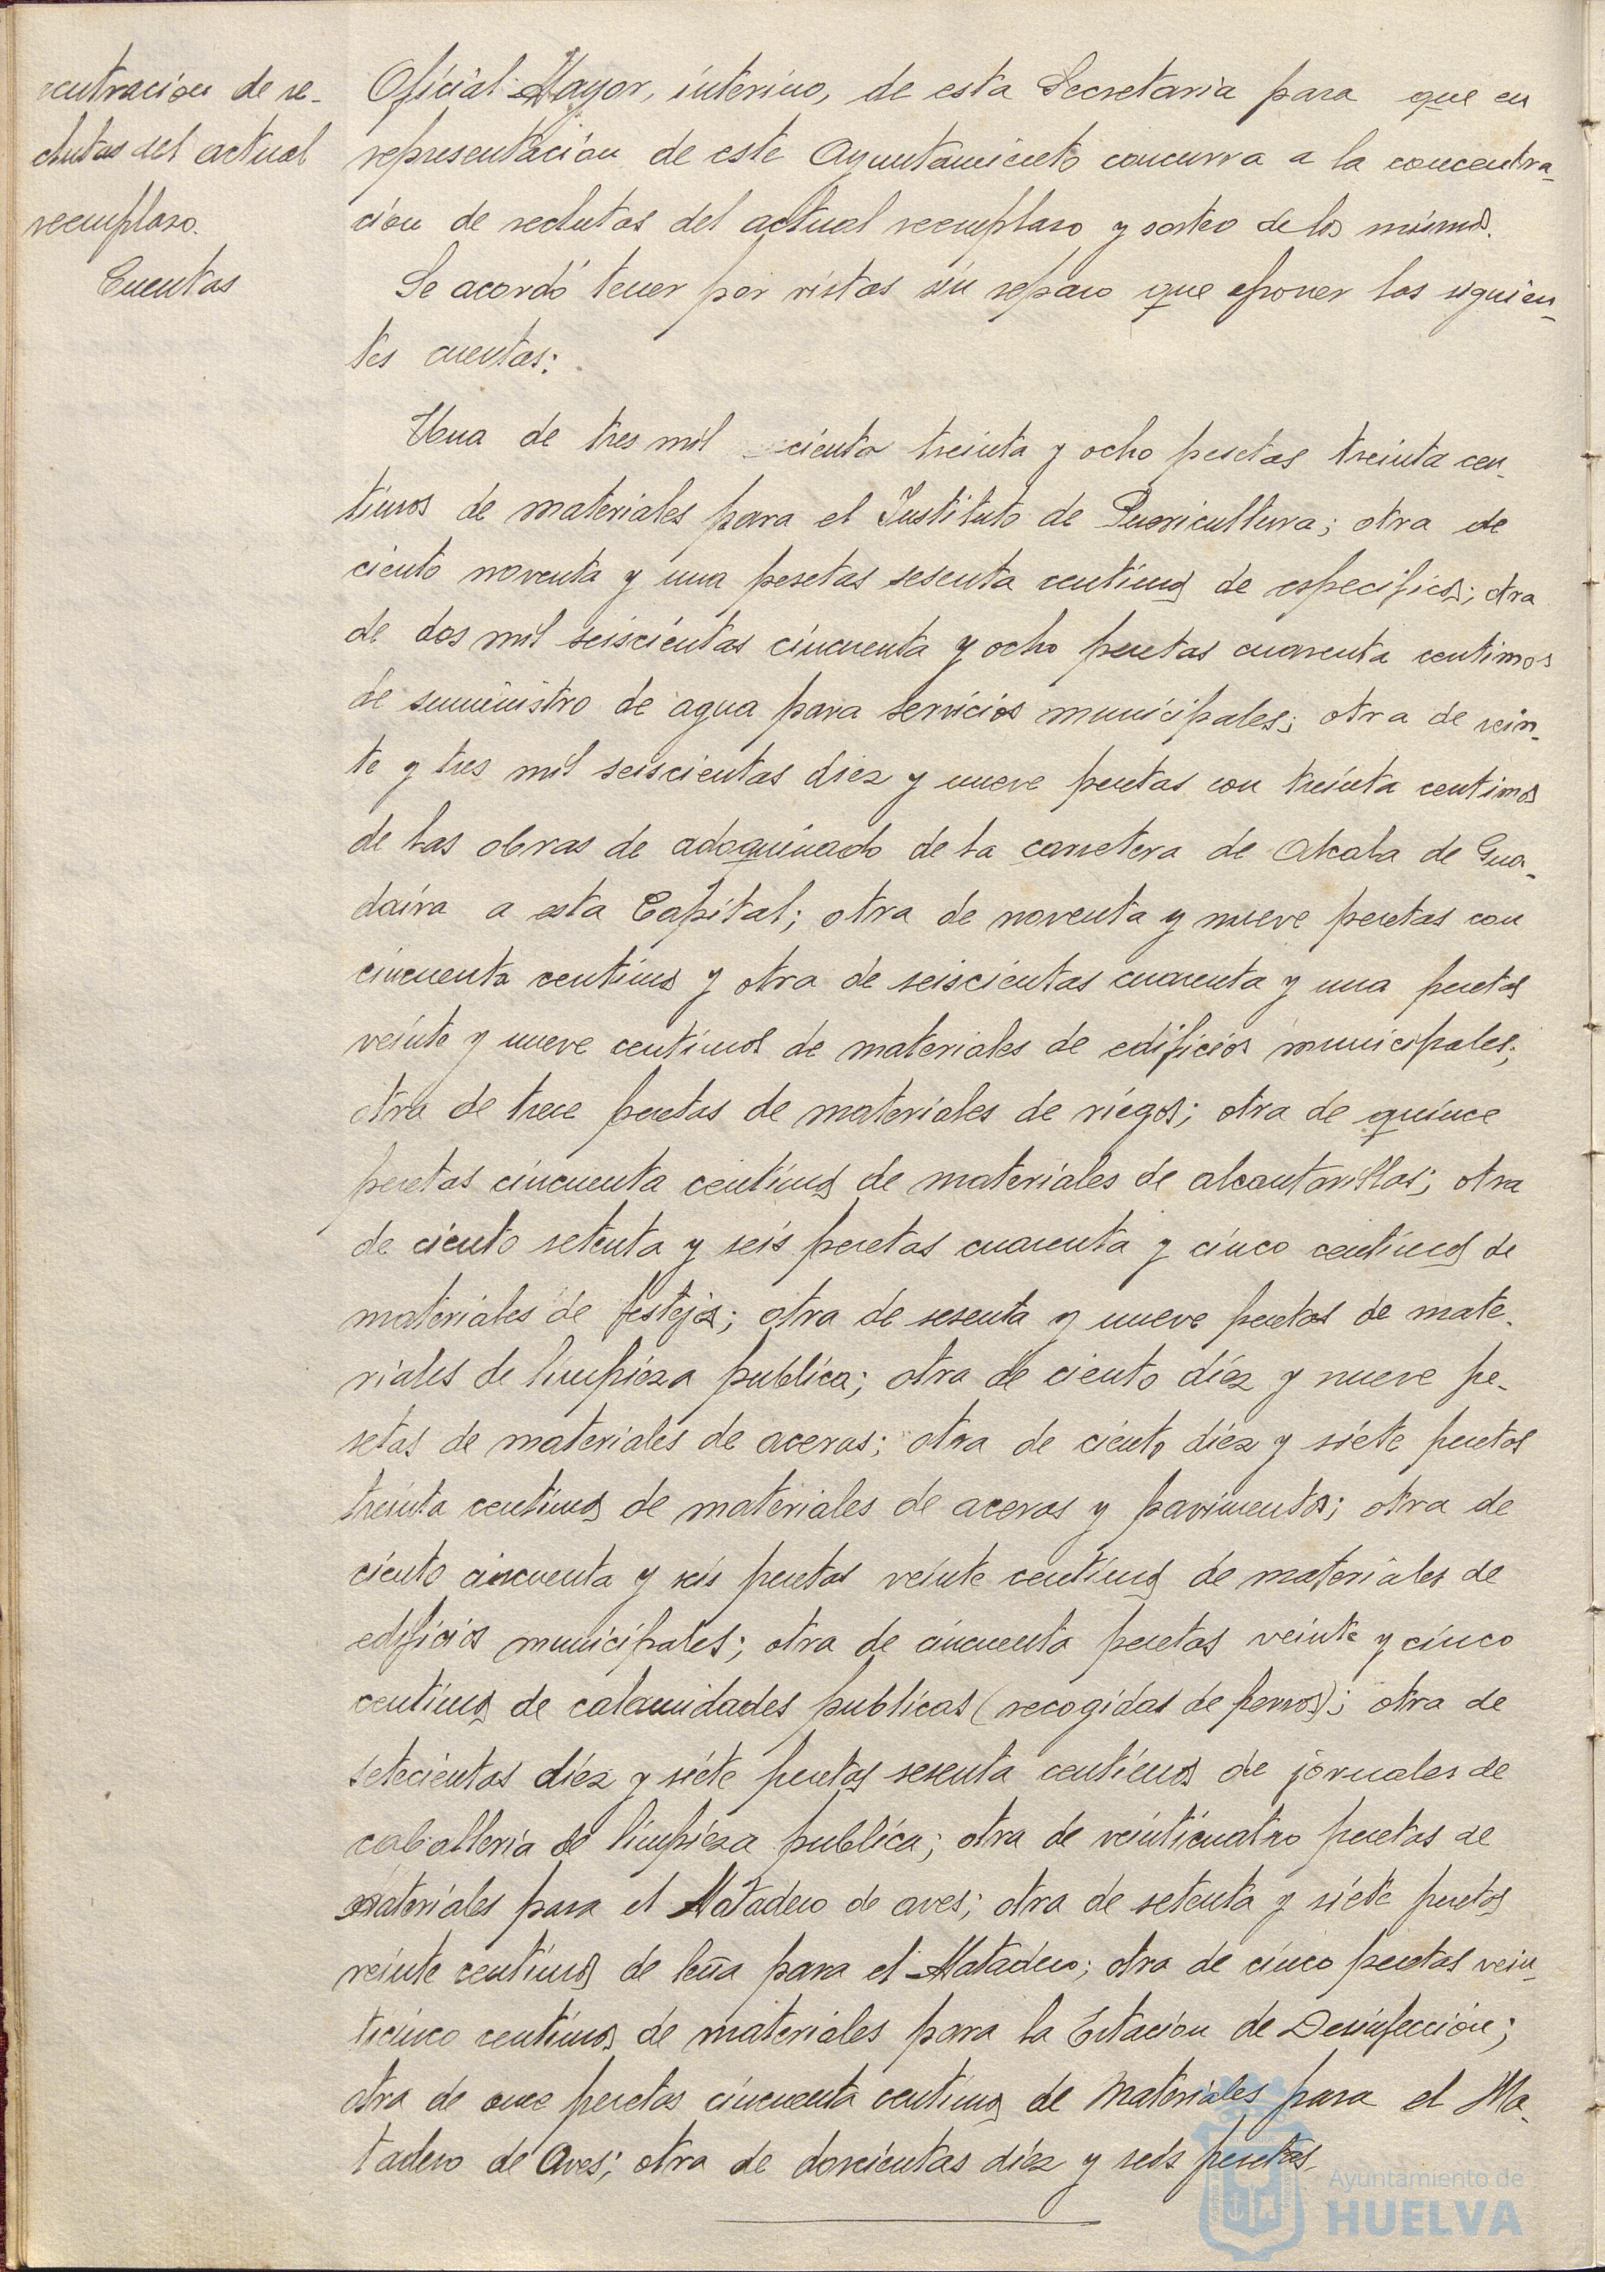 centracion de re-
clutas del actual
reemplazo.
Cuentas
Oficial Mayor, interino, de esta Secretaria para que en
representación de este Ayuntamiento concurra a la concentra-
ción de reclutas del actual reemplazo y sorteo de los mismos.
Se acordó tener por vistas sin reparo que oponer las siguien-
tes cuentas:
Una de tres mil ciento treinta y ocho pesetas treinta cen-
timos de materiales para el Instituto de Puericultura; otra de
ciento noventa y una pesetas sesenta centimos de especificos; otra
de dos mil seiscientas cincuenta y ocho pesetas cuarenta centimos
de suministro de agua para servicios municipales; otra de vein-
te y tres mil seiscientas diez y nueve pesetas con treinta centimos
de las obras de adoquinado de la carretera de Alcala de Gua-
daira a esta Capital; otra de noventa y nueve pesetas con
cincuenta centimos y otra de seiscientas cuarenta y una pesetas
veinte y nueve centimos de materiales de edificios municipales;
otra de trece pesetas de materiales de riegos; otra de quince
pesetas cincuenta centimos de materiales de alcantarillas; otra
de ciento setenta y seis pesetas cuarenta y cinco centimos de
materiales de festejos; otra de sesenta y nueve pesetas de mate-
riales de limpieza publica; otra de ciento diez y nueve pe-
setas de materiales de aceras; otra de ciento diez y siete pesetas
treinta centimos de materiales de aceras y pavimentos; otra de
ciento cincuenta y seis pesetas veinte centimos de materiales de
edificios municipales; otra de cincuenta pesetas veinte y cinco
centimos de calamidades publicas (recogidas de perros); otra de
setecientas diez y siete pesetas sesenta centimos de jornales de
caballeria de limpieza publica; otra de veinticuatro pesetas de
materiales para el Matadero de aves; otra de setenta y siete pesetas
veinte centimos de leña para el Matadero; otra de cinco pesetas vein-
ticinco centimos de materiales para la Estación de Desinfección;
otra de once pesetas cincuenta centimos de Materiales para el Ma-
tadero de Aves; otra de doscientas diez y seis pesetas
Ayuntamiento de
HUELVA